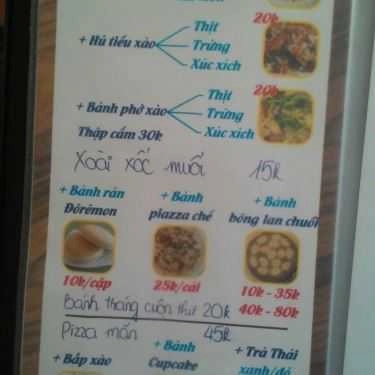 20k
Thịt
+ Hủ tiếu xào
Trứng
Xúc xích
20k
Thịt
+ Bánh phở xào
Trứng
Xúc xích
Thập cẩm 30k
Xoài xốc muối 15k
+ Bánh rán Đôrêmon
+ Bánh piazza chế
+ Bánh bông lan chuối
10k/cặp
25k/cái
10k - 35k
40k - 80k
Bánh tráng cuốn thịt 20k
Pizza mặn 45k
+ Bắp xào
+ Bánh Cupcake
+ Trà Thái xanh/đỏ